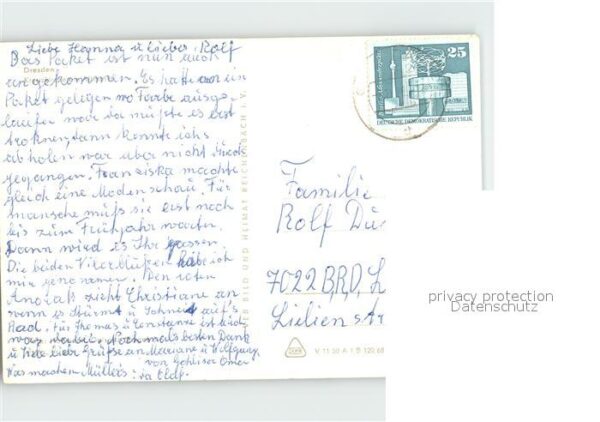 Liebe Hanna u Lieber Rolf
Das Paket ist nun auch
Dresden
angekommen. Es hatte an ein
Paket gelegen wo Farbe ausge-
laufen war da müßte es erst
troknen, dann konnte ichs
abholen war aber nicht
gegangen. Franziska machte
gleich eine Modenschau. Für
manche muß sie erst noch
bis zum Frühjahr warten.
Dann wird es Ihr passen.
Die beiden habe ich
mir genommen. Den roten
Anorak zieht Christiane an
wenn es Stürmt u Schneit auf's
Rad. Für Thomas u Constanze ist auch
was dabei. Nochmals besten Dank
u viele liebe Grüße an Mariane u Wolfgang.
von Oma
Was machen Müllers: u
VEB BILD UND HEIMAT REICHENBACH I. V.
25
DEUTSCHE DEMOKRATISCHE REPUBLIK
Familie
Rolf
7022 BRD, L
Lilienstr
V 11 50 A 1 B 120/68
privacy protection
Datenschutz